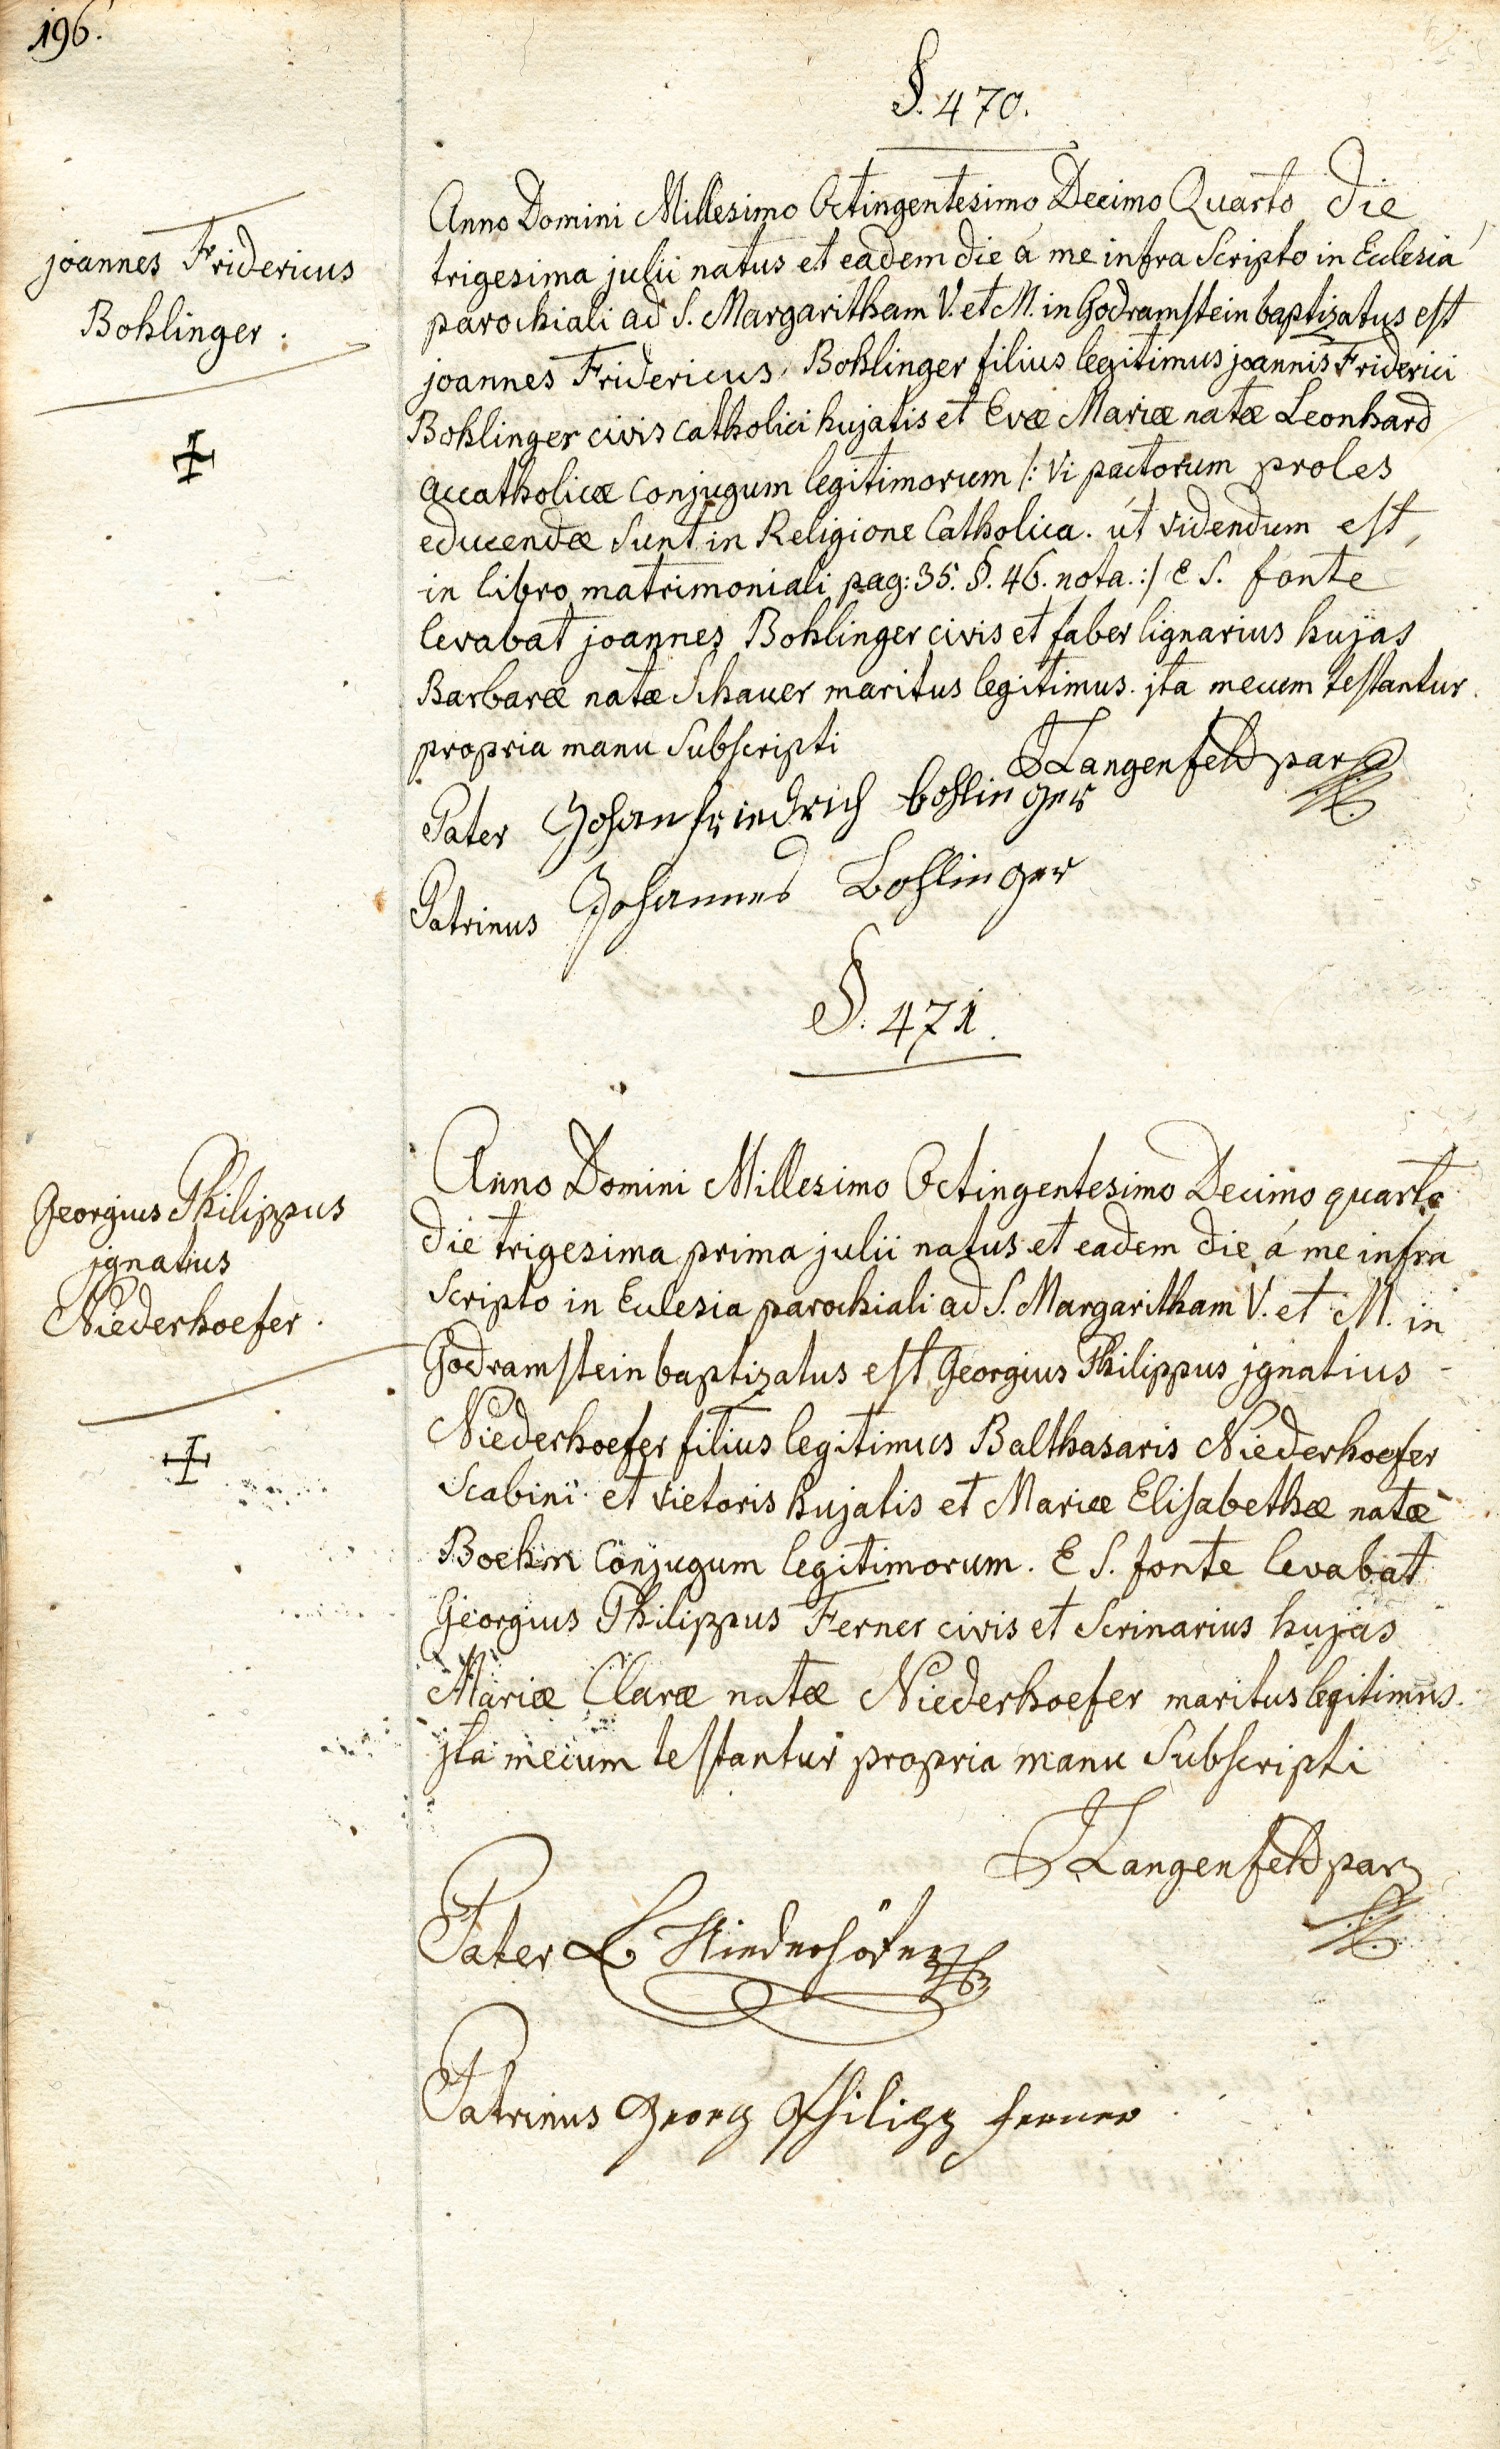 196.
§. 470.
joannes Fridericus
Bohlinger.
Anno Domini Millesimo Octingentesimo Decimo Quarto die
trigesima julii natus et eadem die á me infra Scripto in Eclesia
parochiali ad S. Margaritham V. et M. in Godramstein baptizatus est
joannes Fridericus Bohlinger filius legitimus joannis Friderici
Bohlinger civis catholici hujatis et Evæ Mariæ natæ Leonhard
accatholicæ Conjugum legitimorum /: vi pactorum proles
educendæ Sunt in Religione Catholica. út videndum est,
in libro matrimoniali pag: 35. §. 46. nota. :/ E S. fonte
levabat joannes Bohlinger civis et faber lignarius hujas
Barbaræ natæ Schauer maritus legitimus. jta mecum testantur
propria manu Subscripti
Langenfeld par
Pater Johan friedrich bohlinger
Patrinus Johannes Bohlinger
§. 471.
Georgius Philippus
jgnatius
Niederhoefer.
Anno Domini Millesimo Octingentesimo Decimo quarto
die trigesima prima julii natus et eadem die á me infra
Scripto in Eclesia parochiali ad S. Margaritham V. et M. in
Godramstein baptizatus est Georgius Philippus jgnatius
Niederhoefer filius legitimus Balthasaris Niederhoefer
Scabini et vietoris hujatis et Mariæ Elisabethæ natæ
Boehm Conjugum legitimorum. E S. fonte levabat
Georgius Philippus Ferner civis et Scrinarius hujas
Mariæ Claræ natæ Niederhoefer maritus legitimus.
jta mecum testantur propria manu Subscripti
Langenfeld par
Pater B Niederhöfer
Patrinus Georg Philipp ferner